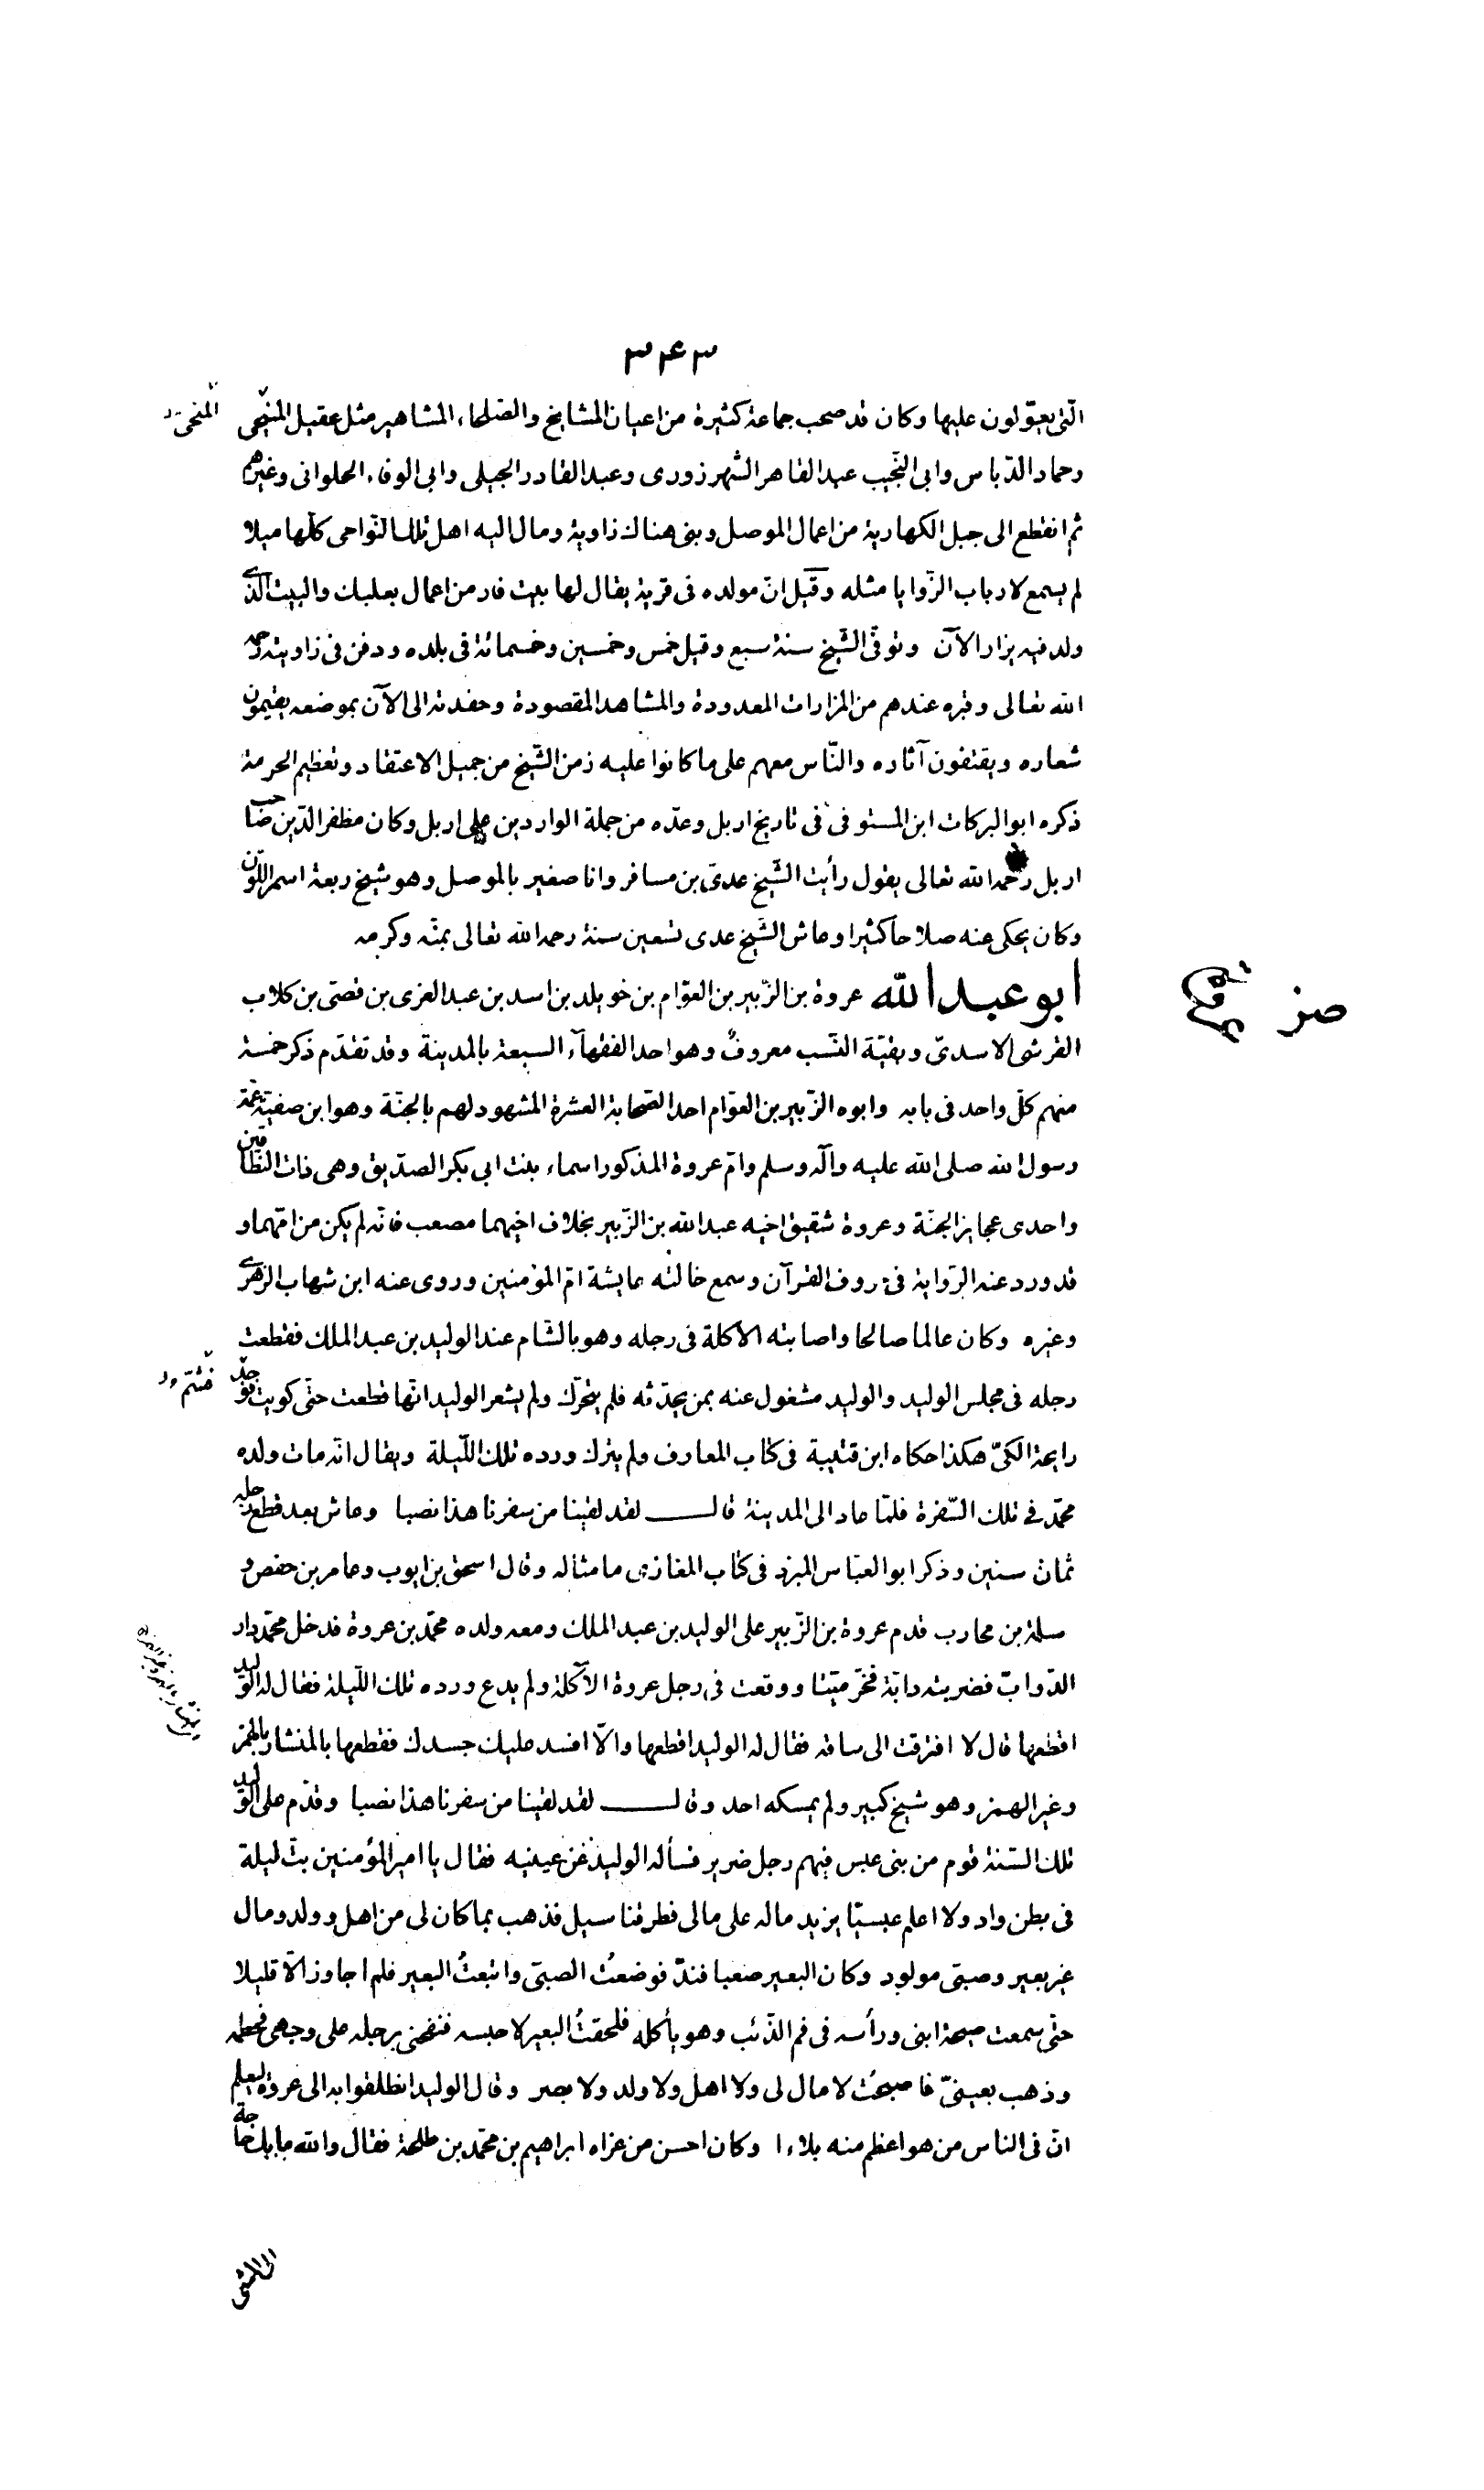 ٣٤٣
الّتى يعوّلون عليها وكان قد صحب جماعة كثيرة من اعيان المشايخ والصّلحاء المشاهير مثل عقيل المنبجى
المنحى
وحماد الدّباس وابى النّجيب عبد القاهر الشّهرزورى وعبد القادر الجيلى وابى الوفاء الحلوانى وغيرهم
ثم انقطع الى جبل الكهارية من اعمال الموصل وبنى هناك زاوية ومال اليه اهل تلك النّواحى كلّها ميلا
لم يسمع لارباب الزّوايا مثله وقيل انّ مولده فى قرية يقال لها بيت فار من اعمال بعلبك والبيت الّذى
ولد فيه يزار الآن وتوفّى الشّيخ سنة سبع وقيل خمس وخمسين وخمسمائة فى بلده ودفن فى زاويته رحمه
الله تعالى وقبره عندهم من المزارات المعدودة والمشاهد المقصودة وحفدته الى الآن بموضعه يقيمون
شعاره ويقتفون آثاره والنّاس معهم على ما كانوا عليه زمن الشّيخ من جميل الاعتقاد وتعظيم الحرمة
ذكره ابو البركات ابن المستوفى فى تاريخ اربل وعدّه من جملة الواردين على اربل وكان مظفر الدّين صاحب
اربل رحمه الله تعالى يقول رأيت الشّيخ عدىّ بن مسافر وانا صغير بالموصل وهو شيخ ربعة اسمر اللّون
وكان يحكى عنه صلاحا كثيرا وعاش الشّيخ عدى تسعين سنة رحمه الله تعالى بمنّه وكرمه
ابو عبد الله عروة بن الزّبير بن العوّام بن خويلد بن اسد بن عبد العزى بن قصىّ بن كلاب
القرشى الاسدىّ وبقيّة النّسب معروفٌ وهو احد الفقهآء السبعة بالمدينة وقد تقدّم ذكر خمسة
منهم كلّ واحد فى بابه وابوه الزّبير بن العوّام احد الصّحابة العشرة المشهود لهم بالجنّة وهو ابن صفيّة عمّة
رسول الله صلى الله عليه وآله وسلم وامّ عروة المذكور اسماء بنت ابى بكر الصدّيق وهى ذات النّطاقين
واحدى عجايز الجنّة وعروة شقيق اخيه عبد الله بن الزّبير بخلاف اخيهما مصعب فانّه لم يكن من امّهما و
قد ورد عنه الرّواية فى حروف القرآن وسمع خالته عايشة امّ المؤمنين وروى عنه ابن شهاب الزهرى
وغيره وكان عالما صالحا واصابته الآكلة فى رجله وهو بالشّام عند الوليد بن عبد الملك فقطعت
رجله فى مجلس الوليد والوليد مشغول عنه بمن يحدّثه فلم يتحرّك ولم يشعر الوليد انّها قطعت حتّى كويت فوجد
فشمّ
رايحة الكىّ هكذا حكاه ابن قتيبة فى كتاب المعارف ولم يترك ورده تلك اللّيلة ويقال انّه مات ولده
محمّد فى تلك السّفرة فلمّا عاد الى المدينة قال لقد لقينا من سفرنا هذا نصبا وعاش بعد قطع رجله
ثمان سنين وذكر ابو العبّاس المبرّد فى كتاب المغازى ما مثاله وقال اسحق بن ايوب وعامر بن حفص و
سلمة بن محارب قدم عروة بن الزّبير على الوليد بن عبد الملك ومعه ولده محمّد بن عروة فدخل محمّد دار
الدّوابّ فضربته دابّة فخرّ ميّتا ووقعت فى رجل عروة الآكلة ولم يدع ورده تلك اللّيلة فقال له الوليد
اقطعها قال لا افترقت الى ساقه فقال له الوليد اقطعها والّا افسد عليك جسدك فقطعها بالمنشار بالهمز
وغير الهمز وهو شيخ كبير ولم يمسكه احد وقال لقد لقينا من سفرنا هذا نصبا وقدّم على الوليد
تلك السّنة قوم من بنى عبس فيهم رجل ضرير فسأله الوليد عن عينيه فقال يا امير المؤمنين بتّ ليلة
فى بطن واد ولا اعلم عبسيّا يزيد ماله على مالى فطرقنا سيل فذهب بما كان لى من اهل وولد ومال
غير بعير وصبىّ مولود وكان البعير صعبا فندّ فوضعت الصبىّ واتبعتُ البعير فلم اجاوز الّا قليلا
حتّى سمعت صيحة ابنى ورأسه فى فم الذّئب وهو يأكله فلحقتُ البعير لاحبسه فنفحنى برجله على وجهى فحطمه
وذهب بعينىّ فاصبحت لا مال لى ولا اهل ولا ولد ولا بصر وقال الوليد انطلقوا به الى عروة ليعلم
انّ فى الناس من هو اعظم منه بلاءا وكان احسن من عزاه ابراهيم بن محمّد بن طلحة فقال والله ما بك حاجة
الى المشى